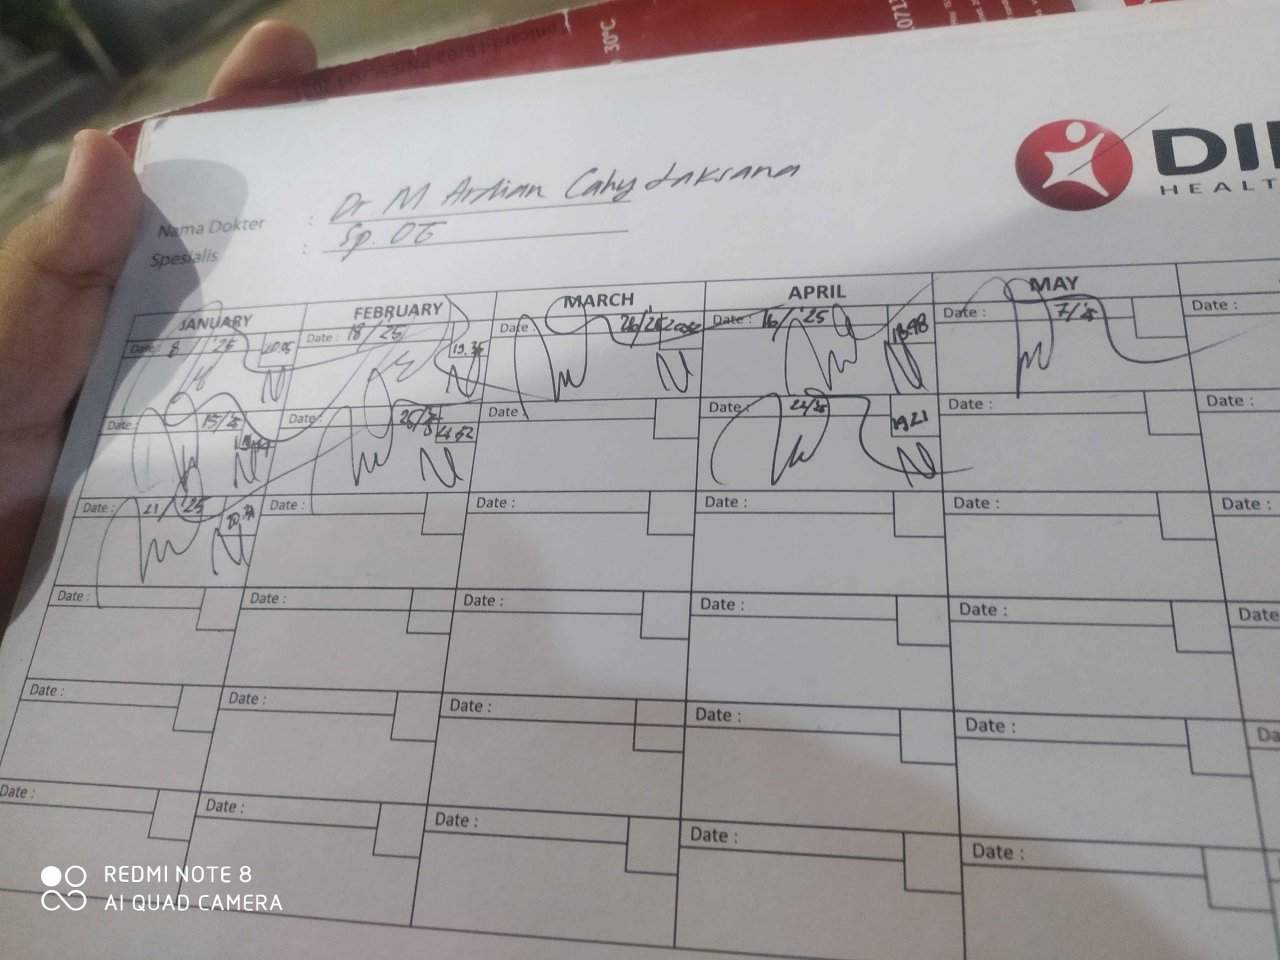 30°C
DI
HEALT
Nama Dokter : Dr M Ardian Cahy Laksana
Spesialis : Sp. OT
JANUARY FEBRUARY MARCH APRIL MAY
Date : 8 / '25 20.05 Date : 18 / '25 19.35 Date : 26/25 Date : 16/ '25 18.48 Date : 7/'25
Date : 15/25 Date : 25/25 Date : Date : 22/25 19.21 Date : Date :
Date : 21 / '25 Date : Date : Date : Date : Date :
Date : Date : Date : Date : Date : Date
Date : Date : Date : Date : Date : Da
Date : Date : Date : Date : Date :
REDMI NOTE 8
AI QUAD CAMERA